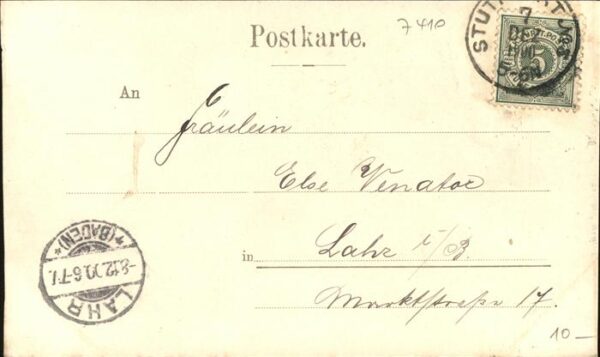 7410
Postkarte.
STUTTGART
7
DEZ
5
An
Fräulein
Else Venator
in Lahr i/B.
Marktstraße 17.
LAHR
-8.12.00.6-7V.
*(BADEN)*
10 —